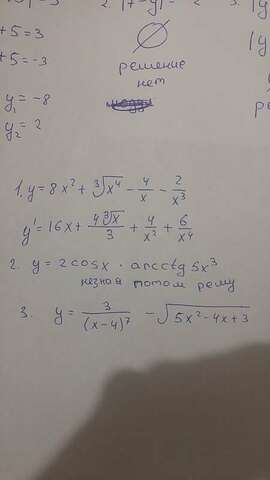 +5 = 3
+5 = -3
решение
нет
y₁ = -8
y₂ = 2
1. y = 8x² + ∛x⁴ - 4/x - 2/x³
y' = 16x + 4∛x/3 + 4/x² + 6/x⁴
2. y = 2cosx · arcctg 5x³
незнаю потом решу
3. y = 3/(x-4)⁷ - √(5x²-4x+3)